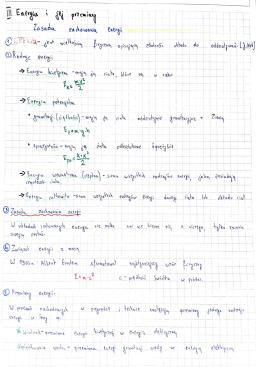 III Energia i jej przemiany
Zasada zachowania energii
① jest wielkością fizyczną opisującą zdolność układu do oddziaływań [J]
② Rodzaje energii:
→ Energia kinetyczna - mają ją ciała, które są w ruchu
Ek = mv²/2
→ Energia potencjalna
• grawitacji (ciężkości) - mają ją ciała oddziałujące grawitacyjnie z Ziemią
Ep = m·g·h
• sprężystości - mają ją ciała odkształcone sprężyście
Eps = k·x²/2
→ Energia wewnętrzna - suma wszystkich rodzajów energii, jakie posiadają
cząsteczki ciała.
→ Energia całkowita - suma wszystkich rodzajów energii danego ciała lub układu ciał
③ Zasada zachowania energii
W układach izolowanych energia nie może się wziąć z niczego, tylko zmienia
swoją postać
④ Związek energii z masą
W Albert Einstein sformułował następujący wzór fizyczny
E = m·c² c - prędkość światła w próżni.
⑤ Przemiany energii:
W procesach zachodzących w przyrodzie i technice następują przemiany jednego rodzaju
energii w inny
przemiana energii kinetycznej w energię elektryczną
przemiana energii grawitacji wody w energię elektryczną